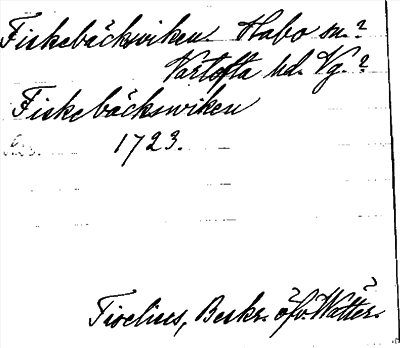 Fiskebäcksviken Habo sn.?
Vartofta hd. Vg.?
Fiskebäckswiken
1723.
Tiselius, Beskr. öfv. Wätter.